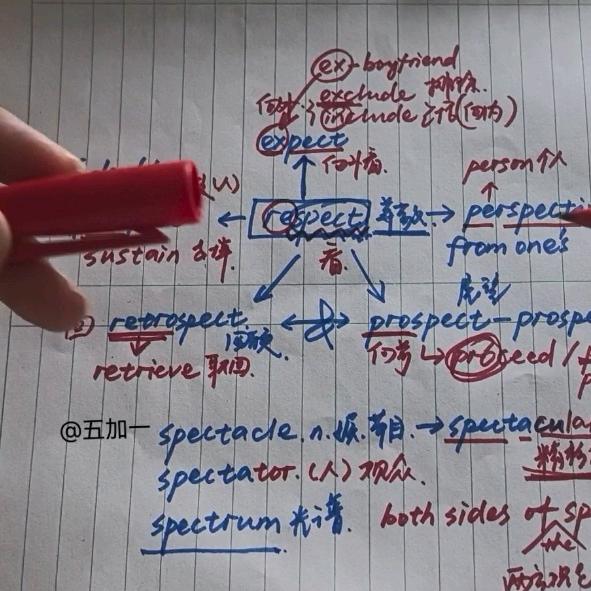 ex-boyfriend
向外 exclude 排除
include 包括(向内)
expect
向外看
person 个人
respect 尊敬 → perspecti
sustain 支撑
看
from one's
retrospect 回顾
prospect - prospe
retrieve 取回
向前 proceed /
@五加一
spectacle. n. 眼. 节目. → spectacula
spectator. (人) 观众.
精彩
spectrum 光谱.
both sides of sp
the